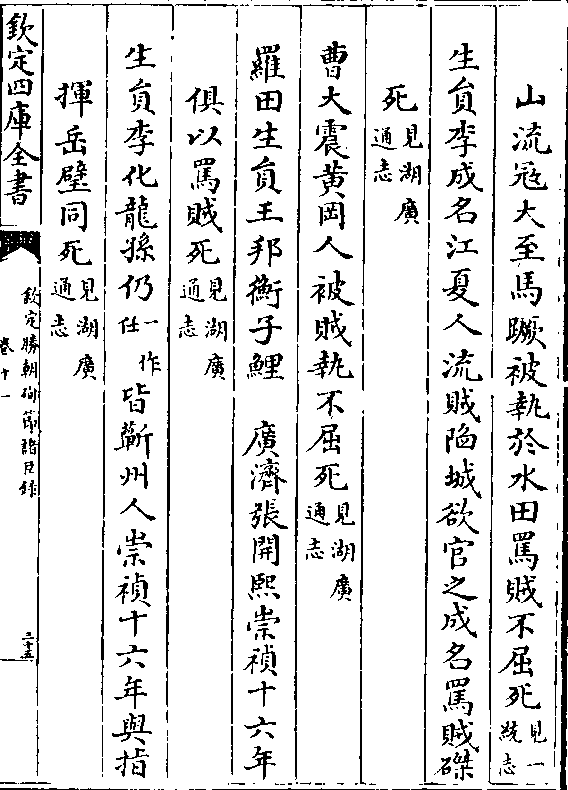 山流冦大至馬蹶被執於水田罵賊不屈死見一統志
生員李成名江夏人流賊陷城欲官之成名罵賊磔
死見湖廣通志
曹大震黄岡人被賊執不屈死見湖廣通志
羅田生員王邦衡子鯉　廣濟張開熙崇禎十六年
俱以罵賊死見湖廣通志
生員李化龍孫仍一作任皆蘄州人崇禎十六年與指
揮岳壁同死見湖廣通志
欽定四庫全書
欽定勝朝殉節諸臣録
卷十一
二十五